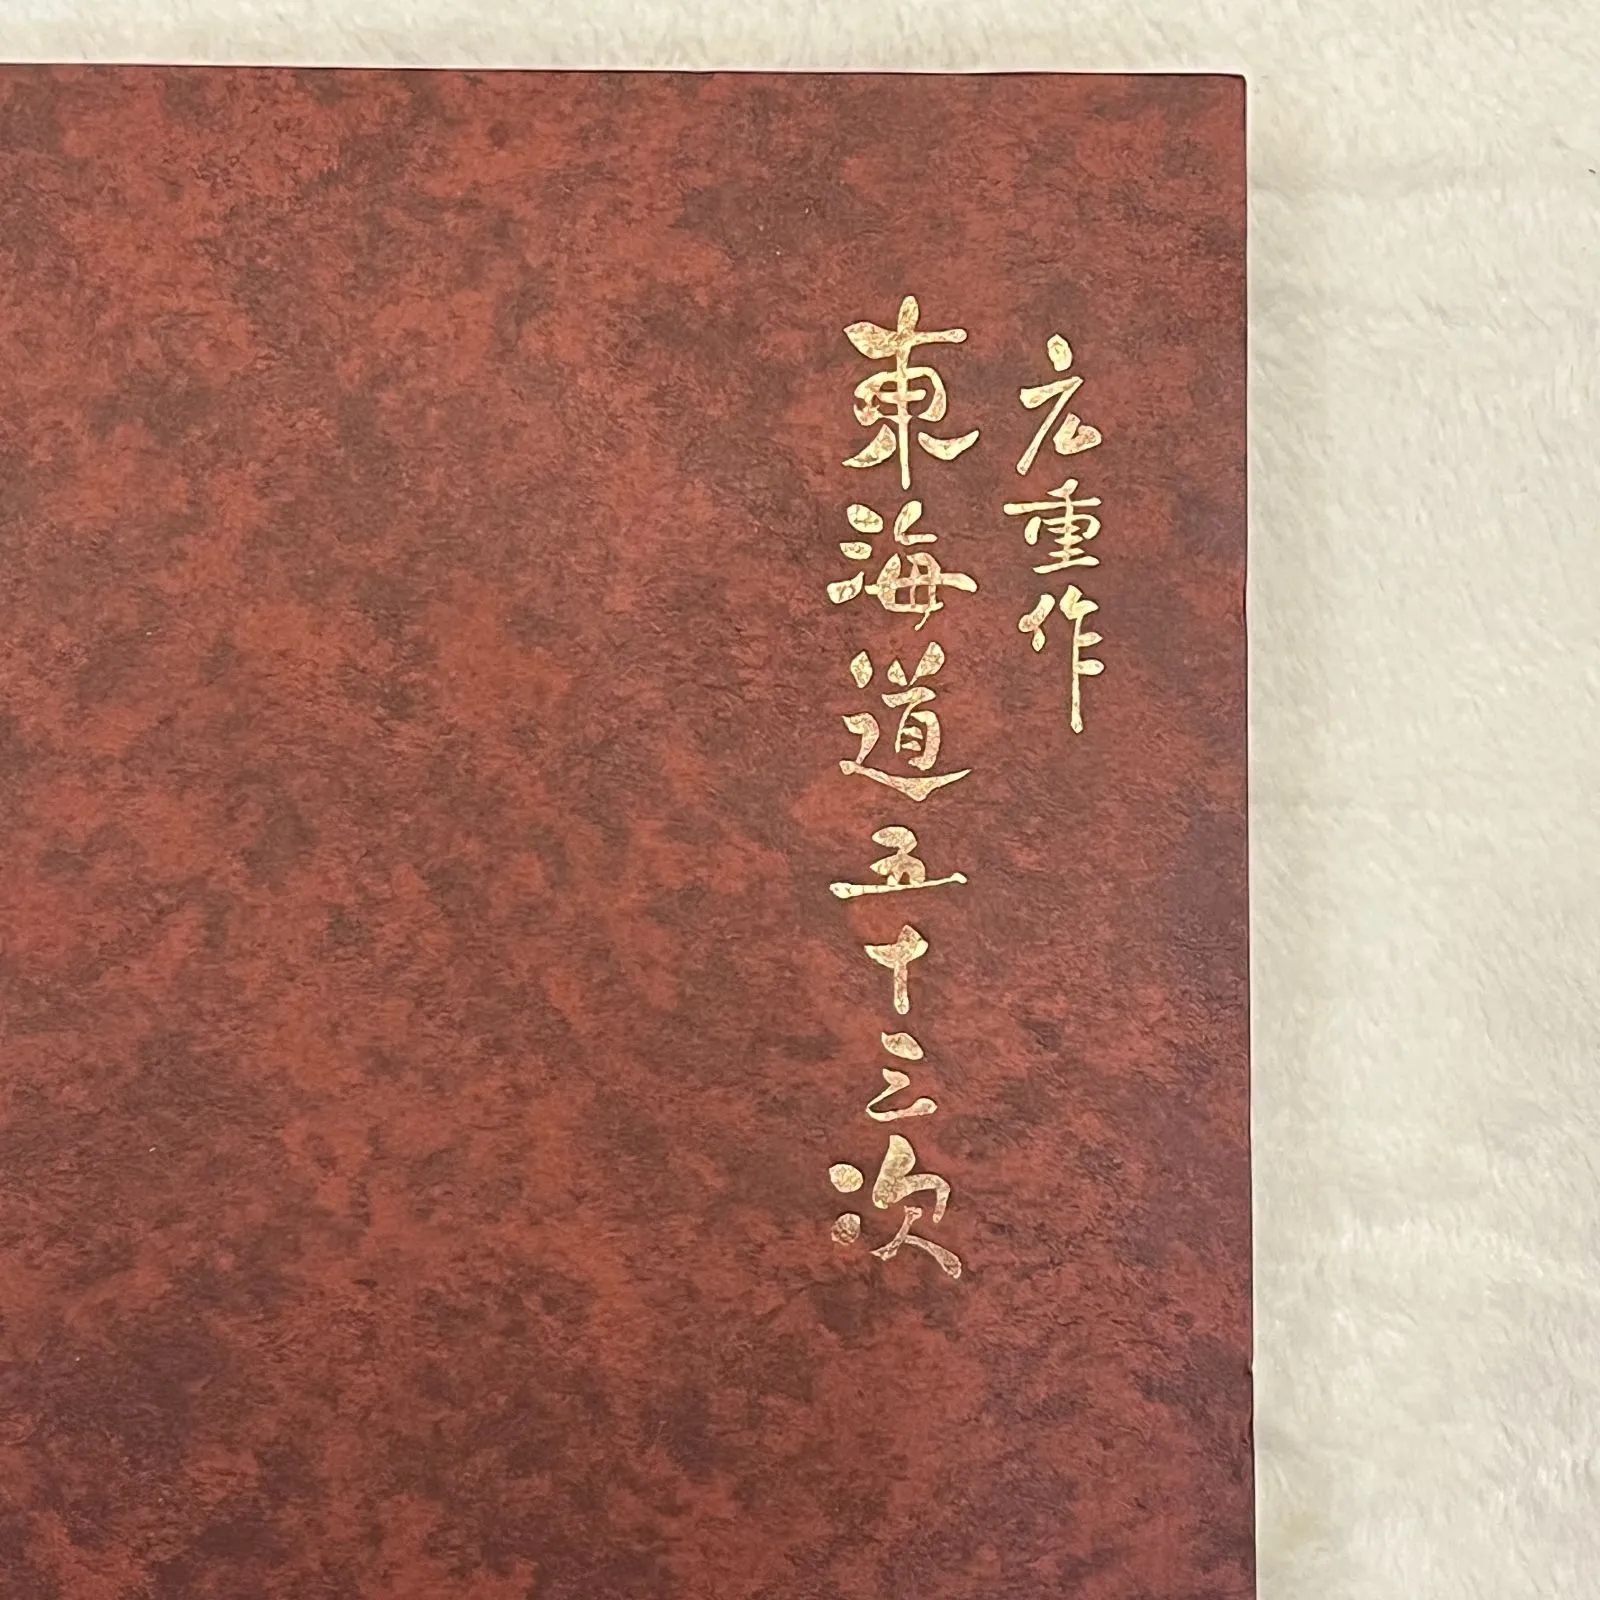 広重作
東海道五十三次